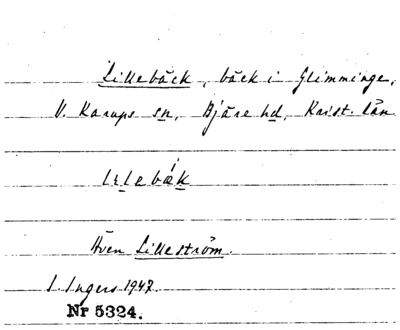 Lillebäck, bäck i Glimminge,
V. Karups sn, Bjäre hd, Krist. län
Även Lilleström.
I. Ingers 1947.
Nr 5324.